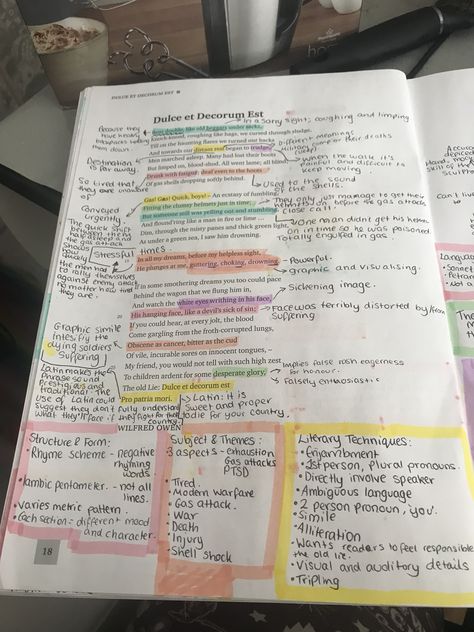 DULCE ET DECORUM EST
Dulce et Decorum Est
Bent double, like old beggars under sacks,
Knock-kneed, coughing like hags, we cursed through sludge,
Till on the haunting flares we turned our backs
And towards our distant rest began to trudge.
Men marched asleep. Many had lost their boots
But limped on, blood-shod. All went lame; all blind;
Drunk with fatigue; deaf even to the hoots
Of gas shells dropping softly behind.
Gas! Gas! Quick, boys! – An ecstasy of fumbling,
Fitting the clumsy helmets just in time;
But someone still was yelling out and stumbling
And flound'ring like a man in fire or lime
Dim, through the misty panes and thick green light,
As under a green sea, I saw him drowning.
In all my dreams, before my helpless sight,
He plunges at me, guttering, choking, drowning.
If in some smothering dreams you too could pace
Behind the wagon that we flung him in,
And watch the white eyes writhing in his face,
His hanging face, like a devil's sick of sin;
If you could hear, at every jolt, the blood
Come gargling from the froth-corrupted lungs,
Obscene as cancer, bitter as the cud
Of vile, incurable sores on innocent tongues, –
My friend, you would not tell with such high zest
To children ardent for some desperate glory,
The old Lie: Dulce et decorum est
Pro patria mori.
WILFRED OWEN
In a sorry sight; coughing and limping
Because they
have knees,
telling
them down.
Different meanings
Destination
is far away.
When the walk it's
painful and difficult to
keep moving
So tired that
they are unaware
Used to the sound
of the shells.
Conveyed
urgently.
They only just manage to get their
helmets on before the gas attack
close call
One man didn't get his helmet
on in time so he was poisoned.
Totally engulfed in gas.
The quick shift
between the
and
the gas attack
shows
quickly
the men had
to rally themselves
against enemy attack
no matter how tired
they are.
Stressful times
Powerful.
Graphic and visualising.
Sickening image.
Face was terribly distorted by
suffering
Graphic simile
the
dying soldiers
Suffering
Implies false rosh eagerness
for honour.
Falsely enthusiastic
Latin makes the
phrase sound
prestigious and
traditional. The
use of Latin could
suggest they don't fully understand
what they'll face if they fight for their
country.
Latin: it is
sweet and proper
to die for your country.
Structure & Form:
• Rhyme scheme - negative
rhyming
words.
• Iambic pentameter. - not all
lines.
• Varies metric pattern.
• Each section = different mood
and character.
Subject & Themes:
3 aspects - exhaustion
Gas attacks
PTSD
• Tired.
• Modern warfare
• Gas attack.
• War
• Death
• Injury
• Shell shock
Literary Techniques:
• Enjambment
• 1st person, plural pronouns.
• Directly involve speaker
• Ambiguous language
• 2 person pronoun, 'you'.
• Simile
• Alliteration
• Wants readers to feel responsible
the old lie.
• Visual and auditory details
• Tripling
18